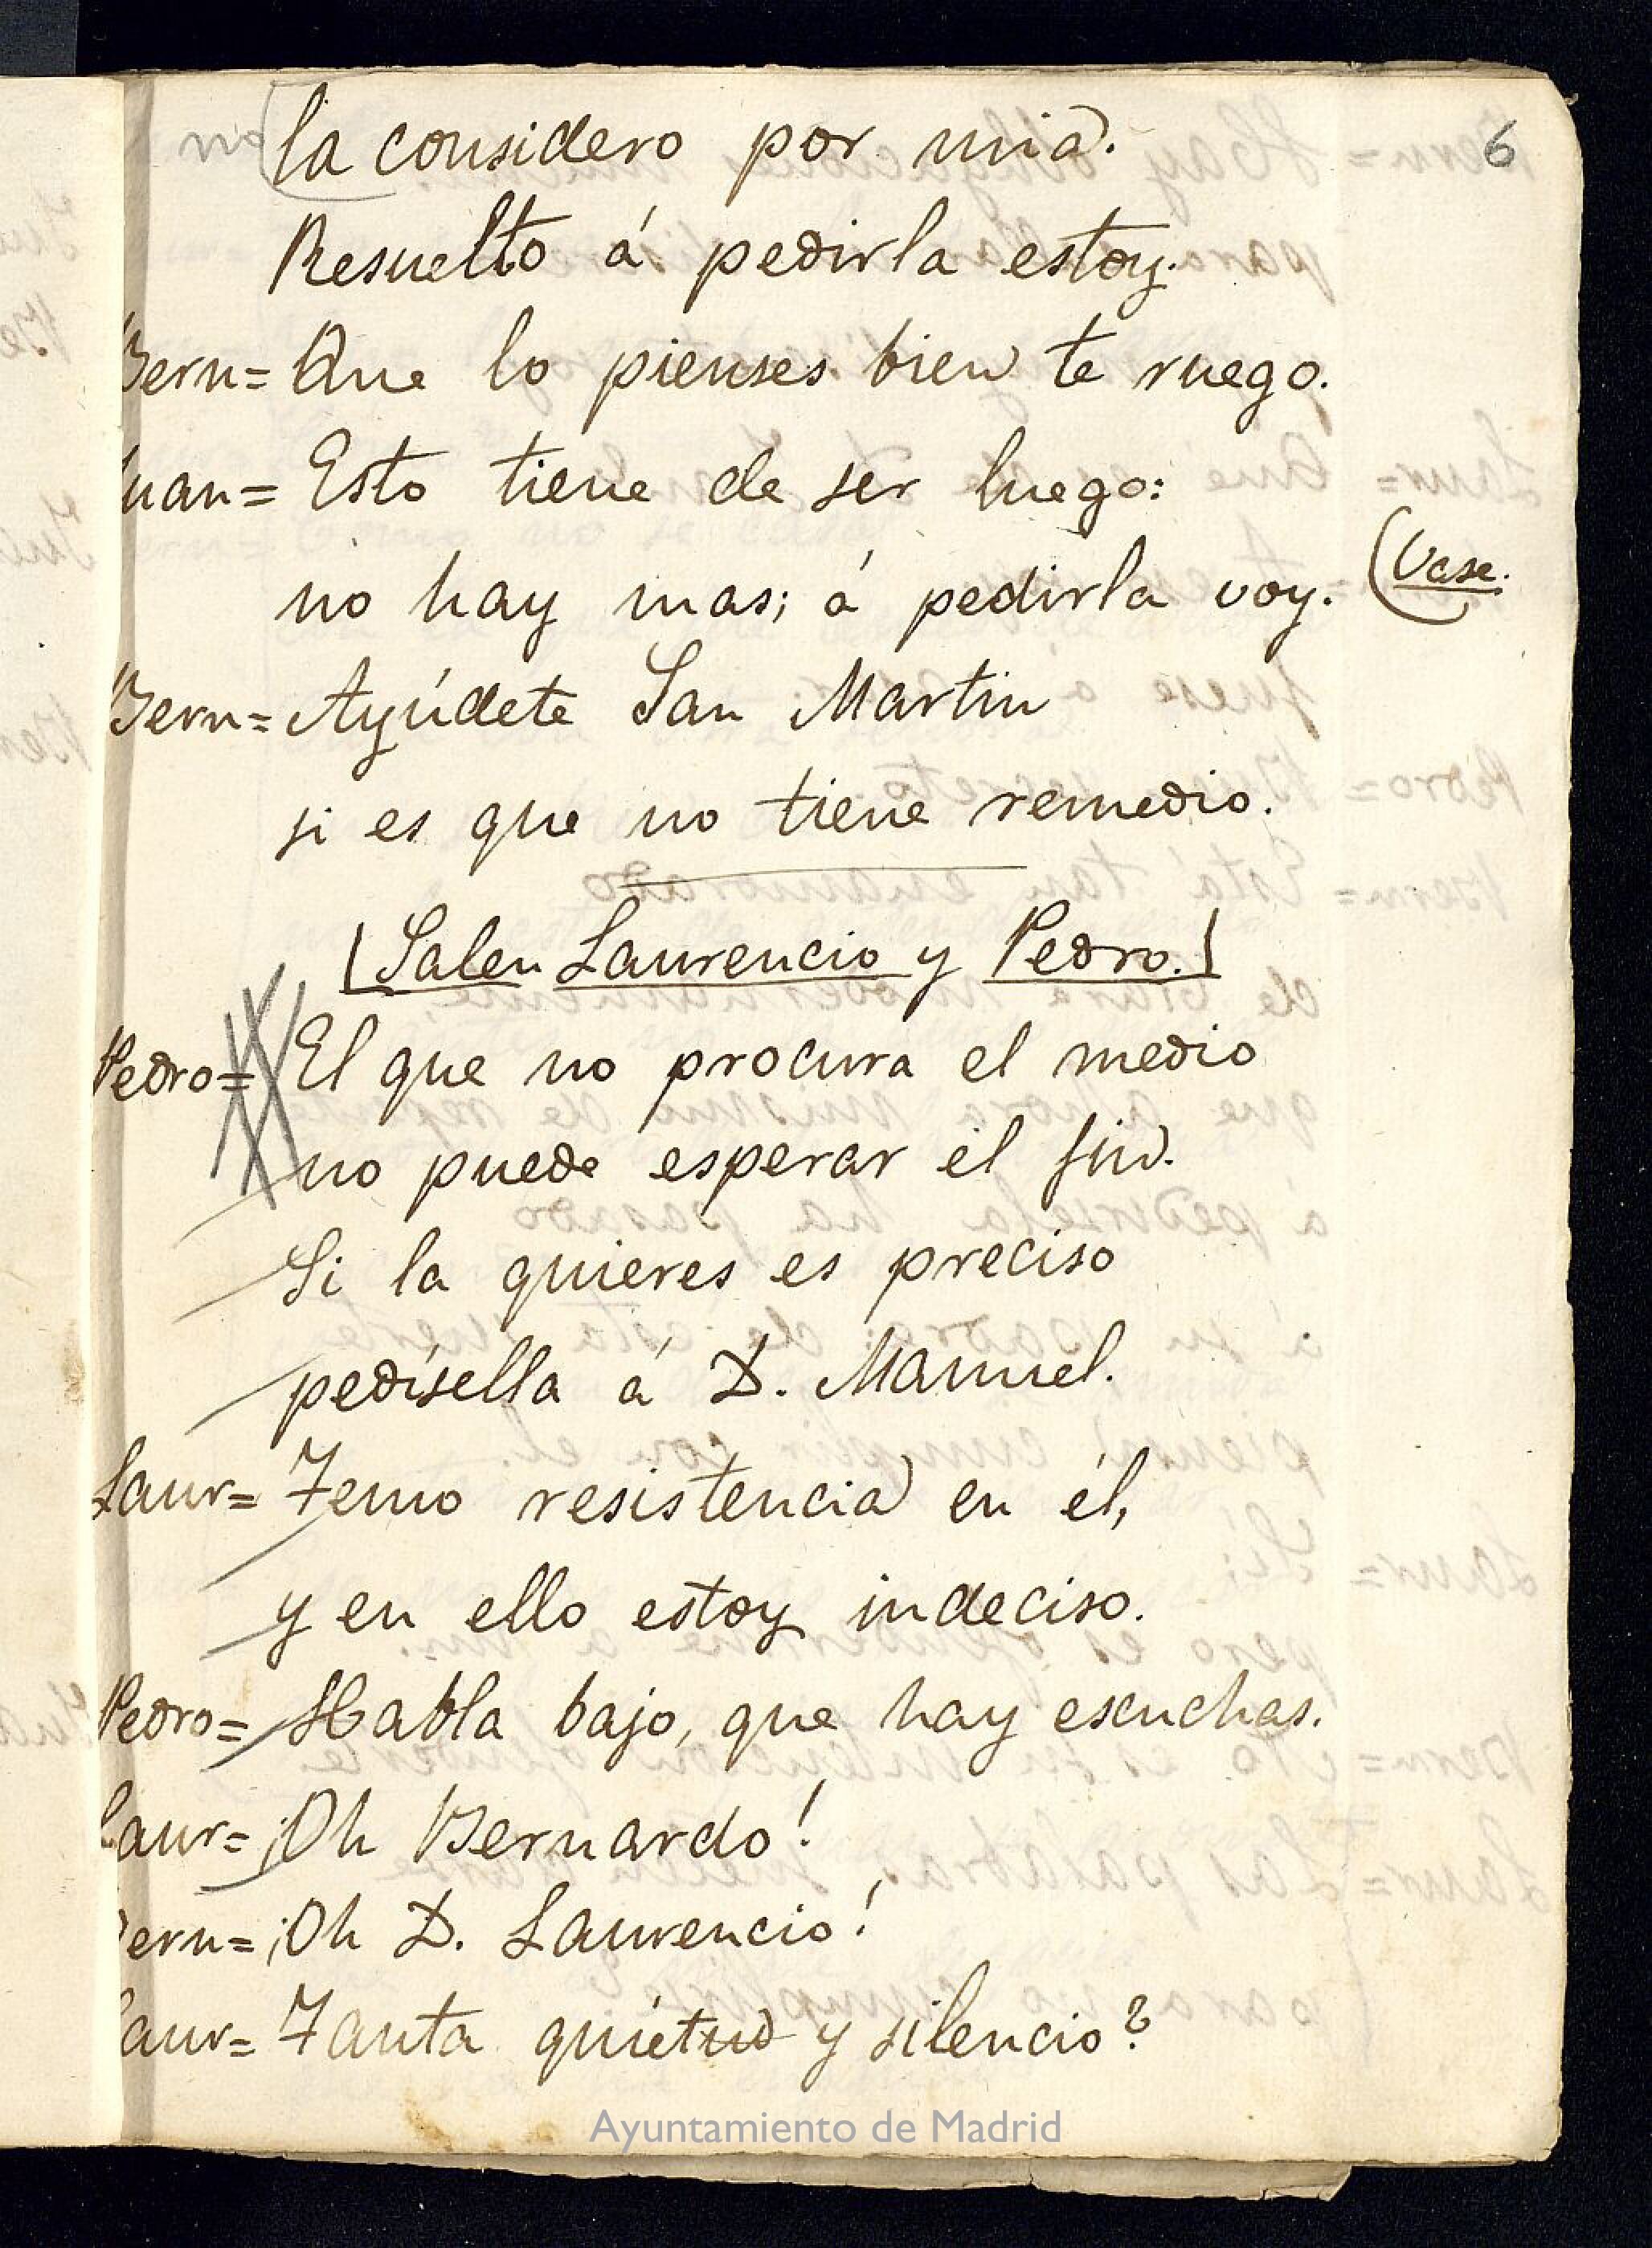 6
la considero por mia.
Resuelto á pedirla estoy.
Bern= Que lo pienses bien te ruego.
Juan= Esto tiene de ser luego:
no hay mas; á pedirla voy. (Vase.
Bern= Ayúdete San Martin
si es que no tiene remedio.
(Salen Laurencio y Pedro.)
Pedro= El que no procura el medio
no puede esperar el fin.
Si la quieres es preciso
pedísella á D. Manuel.
Laur= Temo resistencia en él,
y en ello estoy indeciso.
Pedro= Habla bajo, que hay escuchas.
Laur= ¡Oh Bernardo!
Bern= ¡Oh D. Laurencio!
Laur= Tanta quietud y silencio?
Ayuntamiento de Madrid